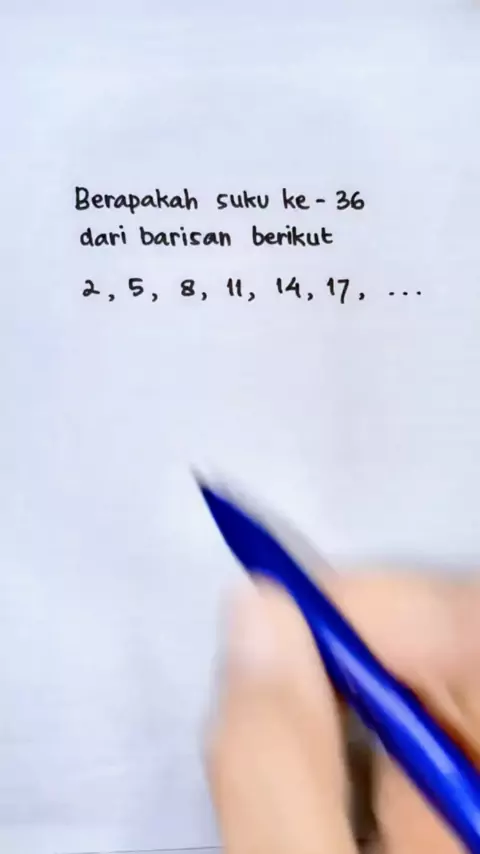 Berapakah suku ke - 36
dari barisan berikut
2, 5, 8, 11, 14, 17, ...